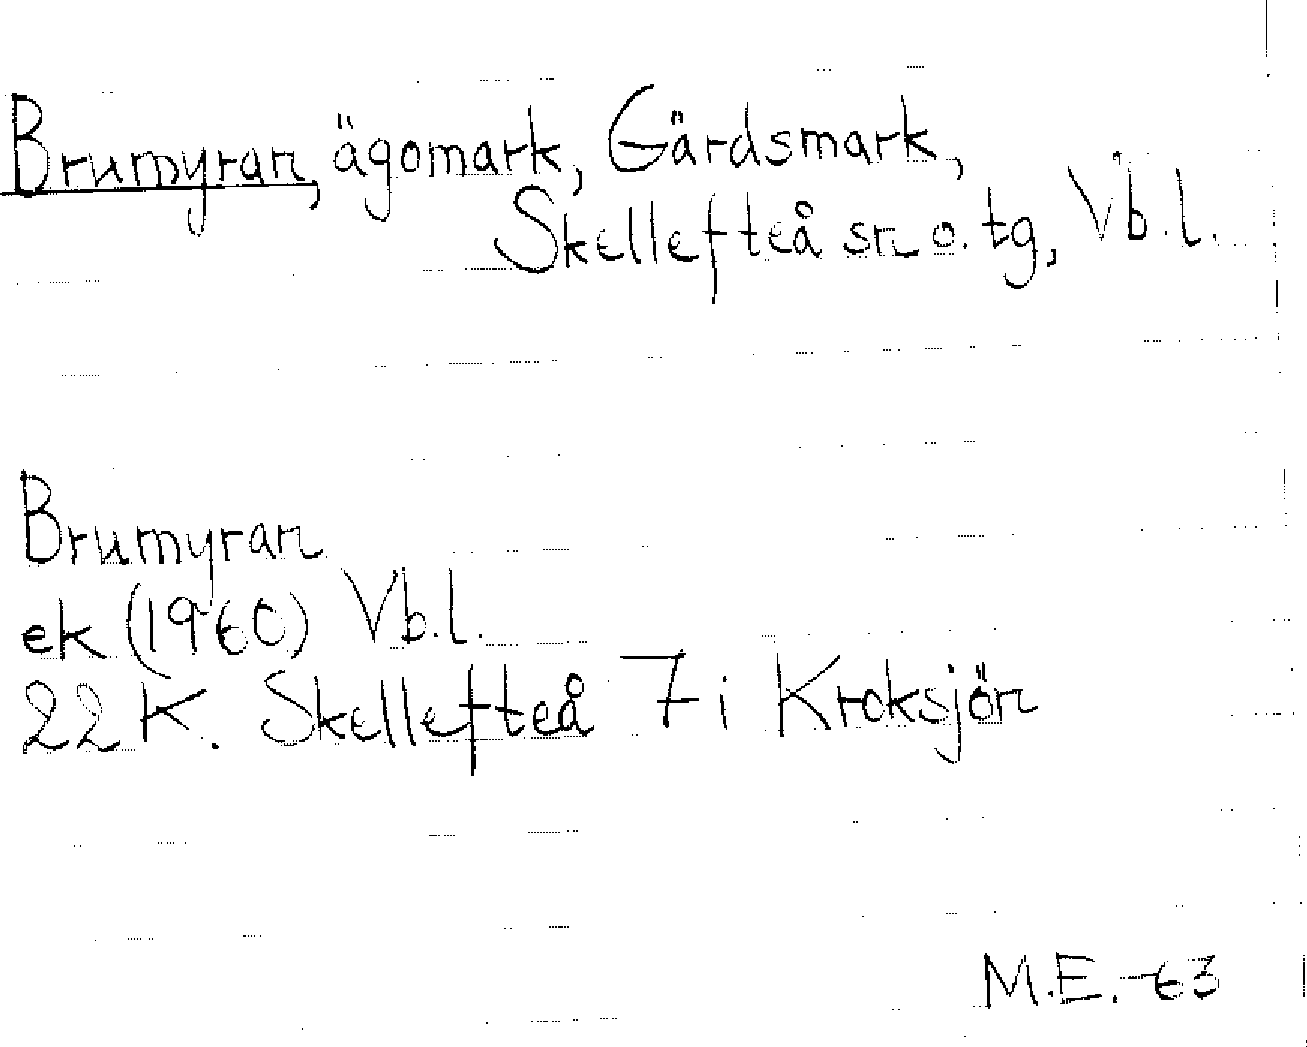 Brumyran, ägomark, Gärdsmark,
Skellefteå sn o. tg, Vb.l.
Brumyran
ek (1960) Vb.l.
22 K. Skellefteå 7 i Kroksjön
M.E. -63